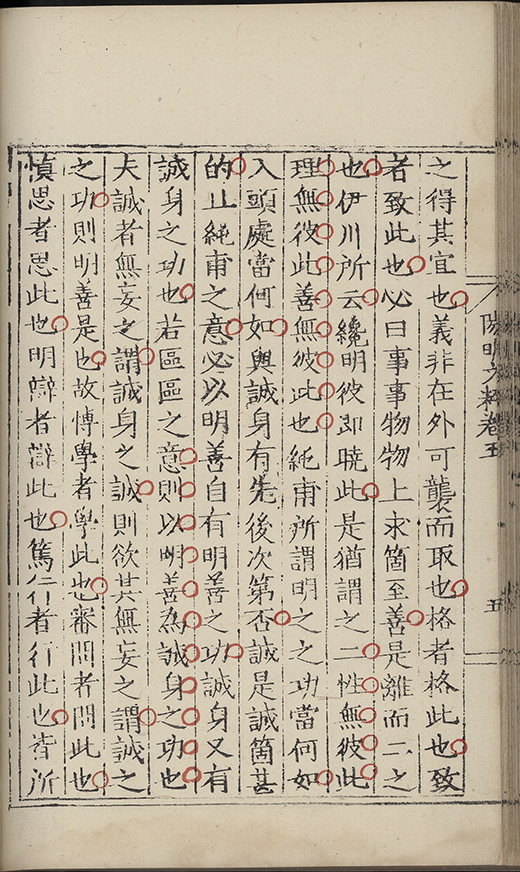 之得其宜也義非在外可襲而取也格者格此也致
者致此也必曰事事物物上求箇至善是離而二之
也伊川所云纔明彼即曉此是猶謂之二性無彼此
理無彼此善無彼此也純甫所謂明之之功當何如
入頭處當何如與誠身有先後次第否誠是誠箇甚
的止純甫之意必以明善自有明善之功誠身又有
誠身之功也若區區之意則以明善為誠身之功也
夫誠者無妄之謂誠身之誠則欲其無妄之謂誠之
之功則明善是也故博學者學此也審問者問此也
慎思者思此也明辯者辯此也篤行者行此也皆所
陽明文粹卷五
五